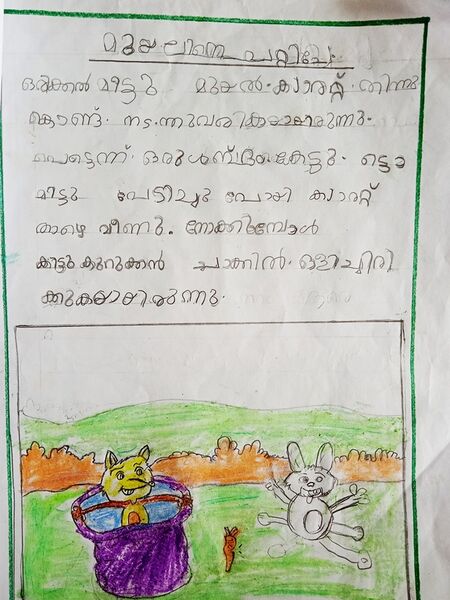 മുയലിനെ പറ്റിച്ചേ
ഒരിക്കൽ മിട്ടു മുയൽ കാരറ്റ് തിന്നു
കൊണ്ട് നടന്നുവരികയായിരുന്നു.
പെട്ടെന്ന് ഒരു ശബ്ദംകേട്ടു. ട്ടൊ
മിട്ടു പേടിച്ചു പോയി കാരറ്റ്
താഴെ വീണു. നോക്കിമ്പോൾ
കിട്ടു കുറുക്കൻ ചാക്കിൽ ഒളിച്ചിരി
ക്കുകയായിരുന്നു.